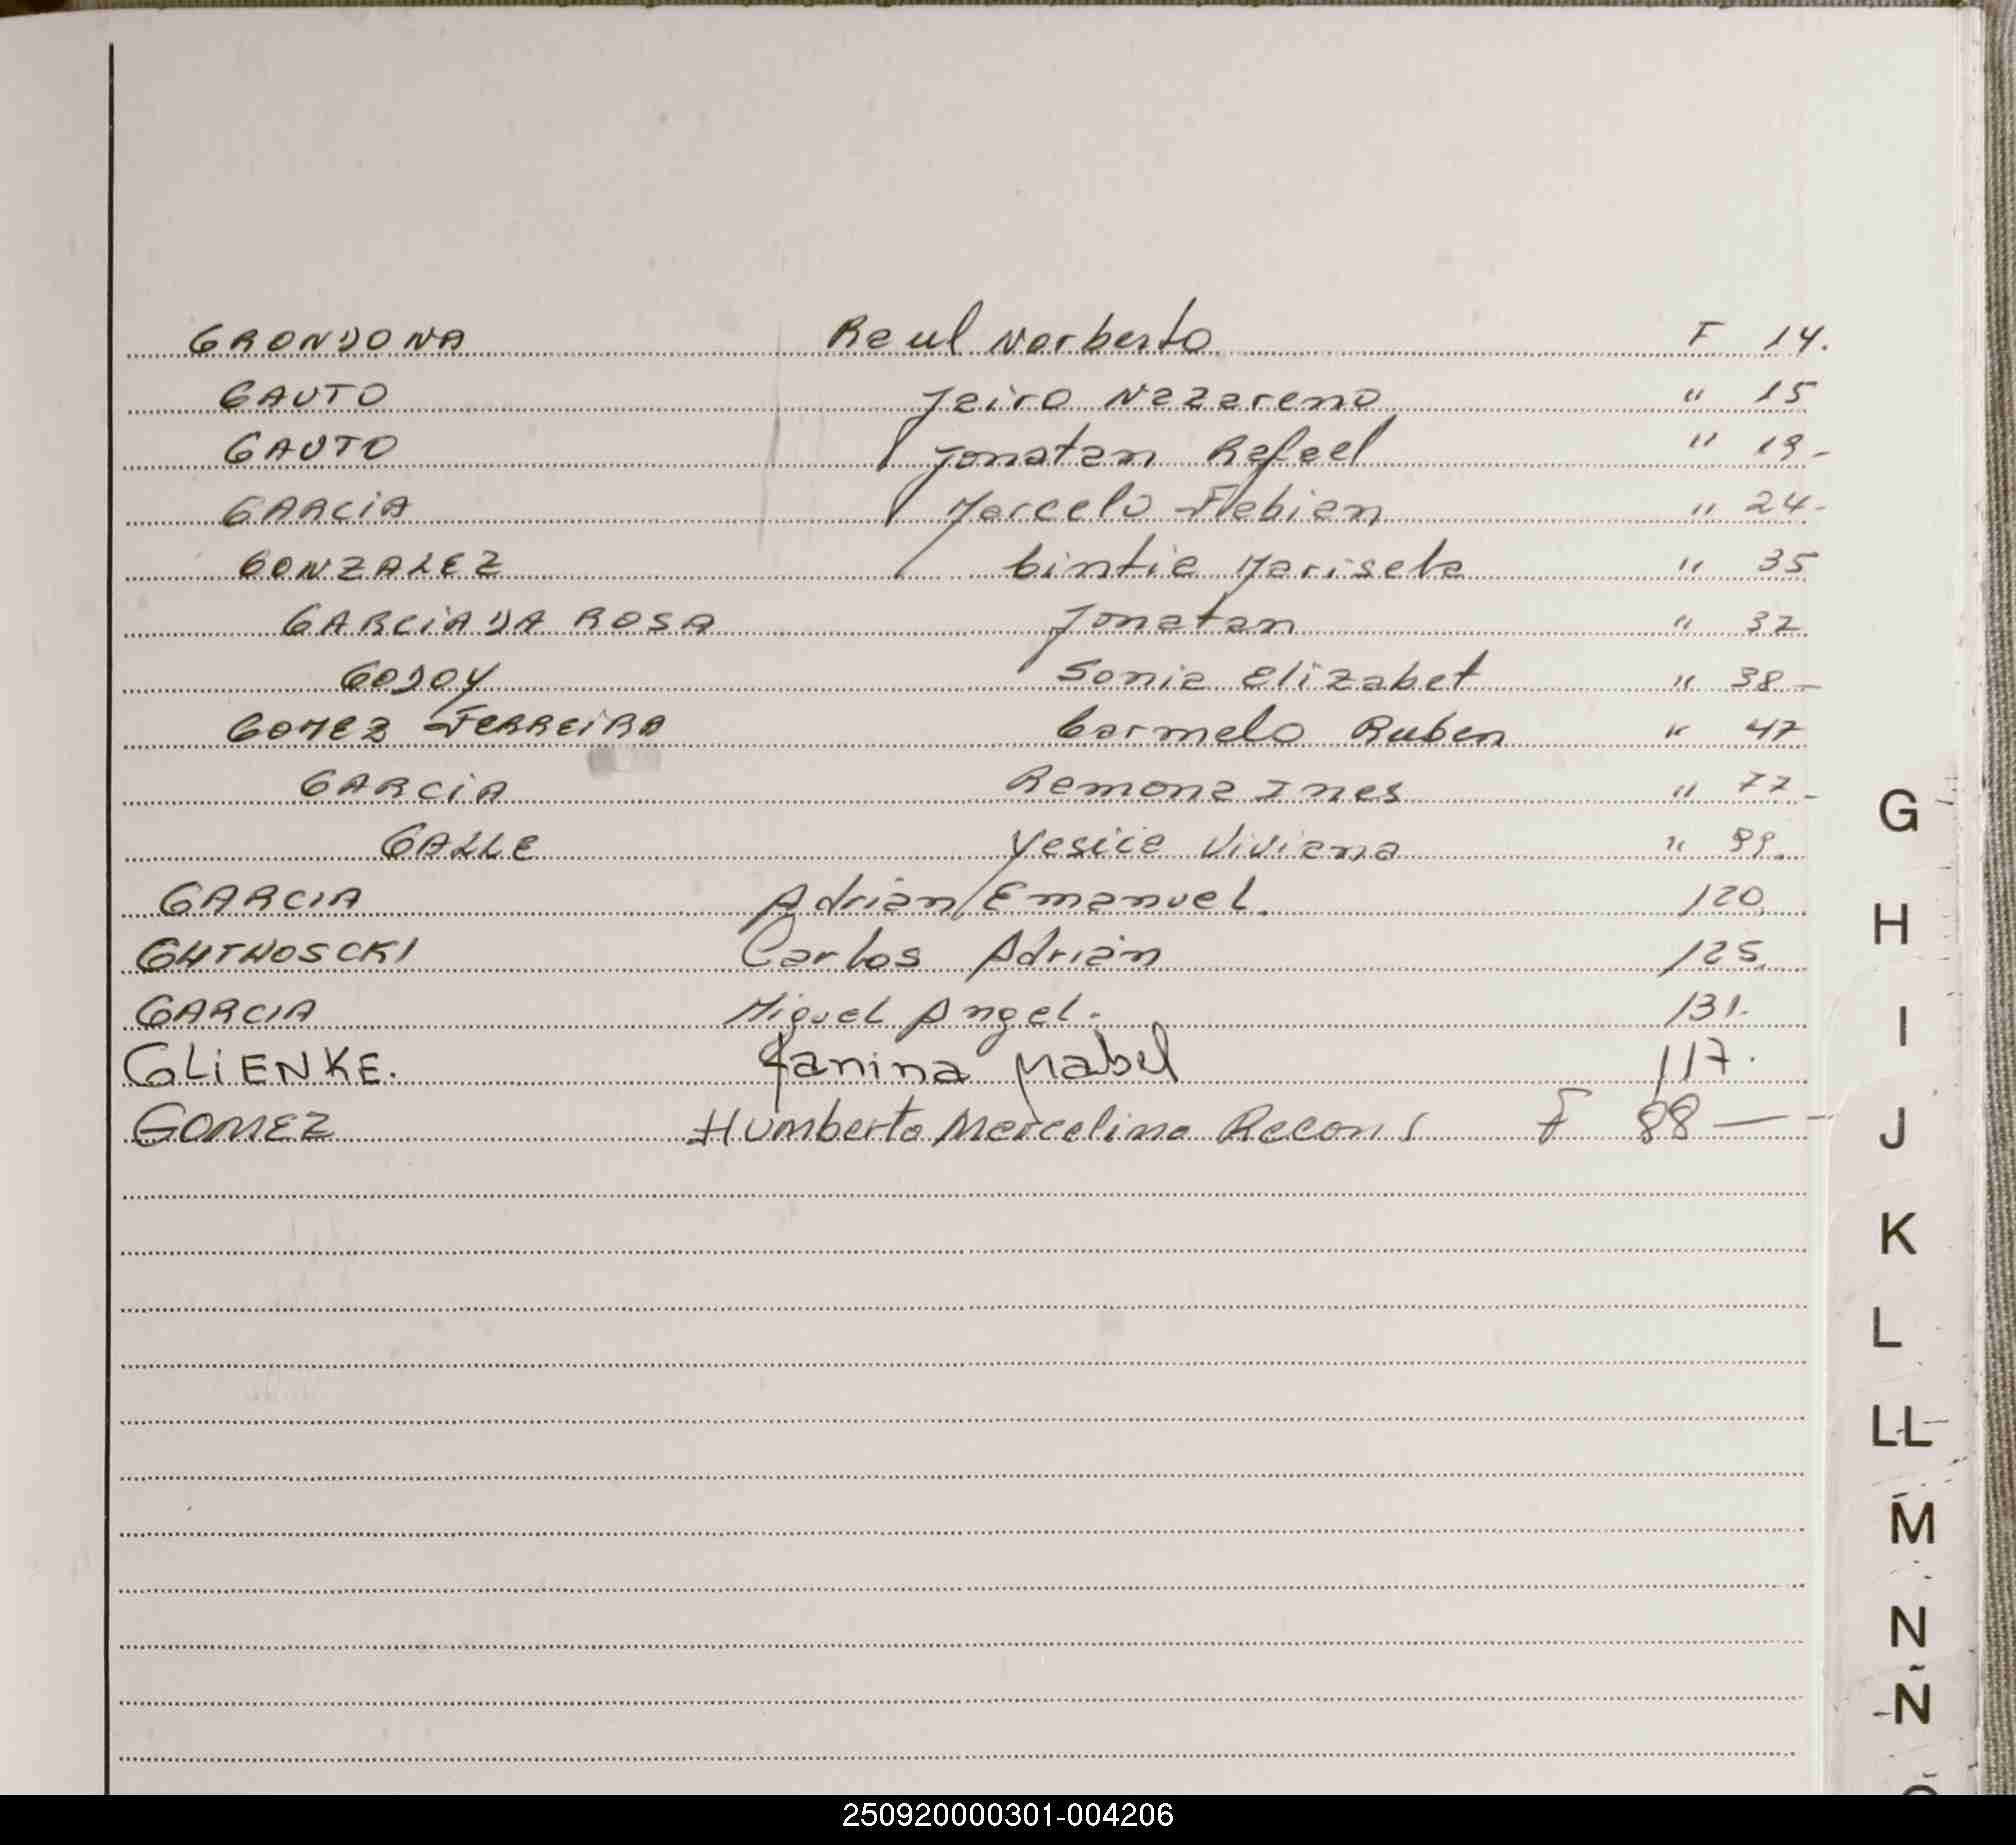 GRONDONA Raul Norberto F 14.
GAUTO Jairo Nazareno " 15
GAUTO Jonatan Rafael " 19-
GARCIA Marcelo Fabian " 24-
GONZALEZ Cintia Marisela " 35
GARCIA DA ROSA Jonatan " 37
GODOY Sonia Elizabet " 38-
GOMEZ FERREIRA Carmelo Ruben " 47
GARCIA Ramona Ines " 77-
GALLE Yesica Viviana " 99.
GARCIA Adrian Emanuel. 120.
Carlos Adrián 125.
GARCIA Miguel Angel. 131.
GLIENKE. Yanina Mabel 117.
GOMEZ Humberto Marcelino F 88 —
G
H
I
J
K
L
LL
M
N
Ñ
250920000301-004206